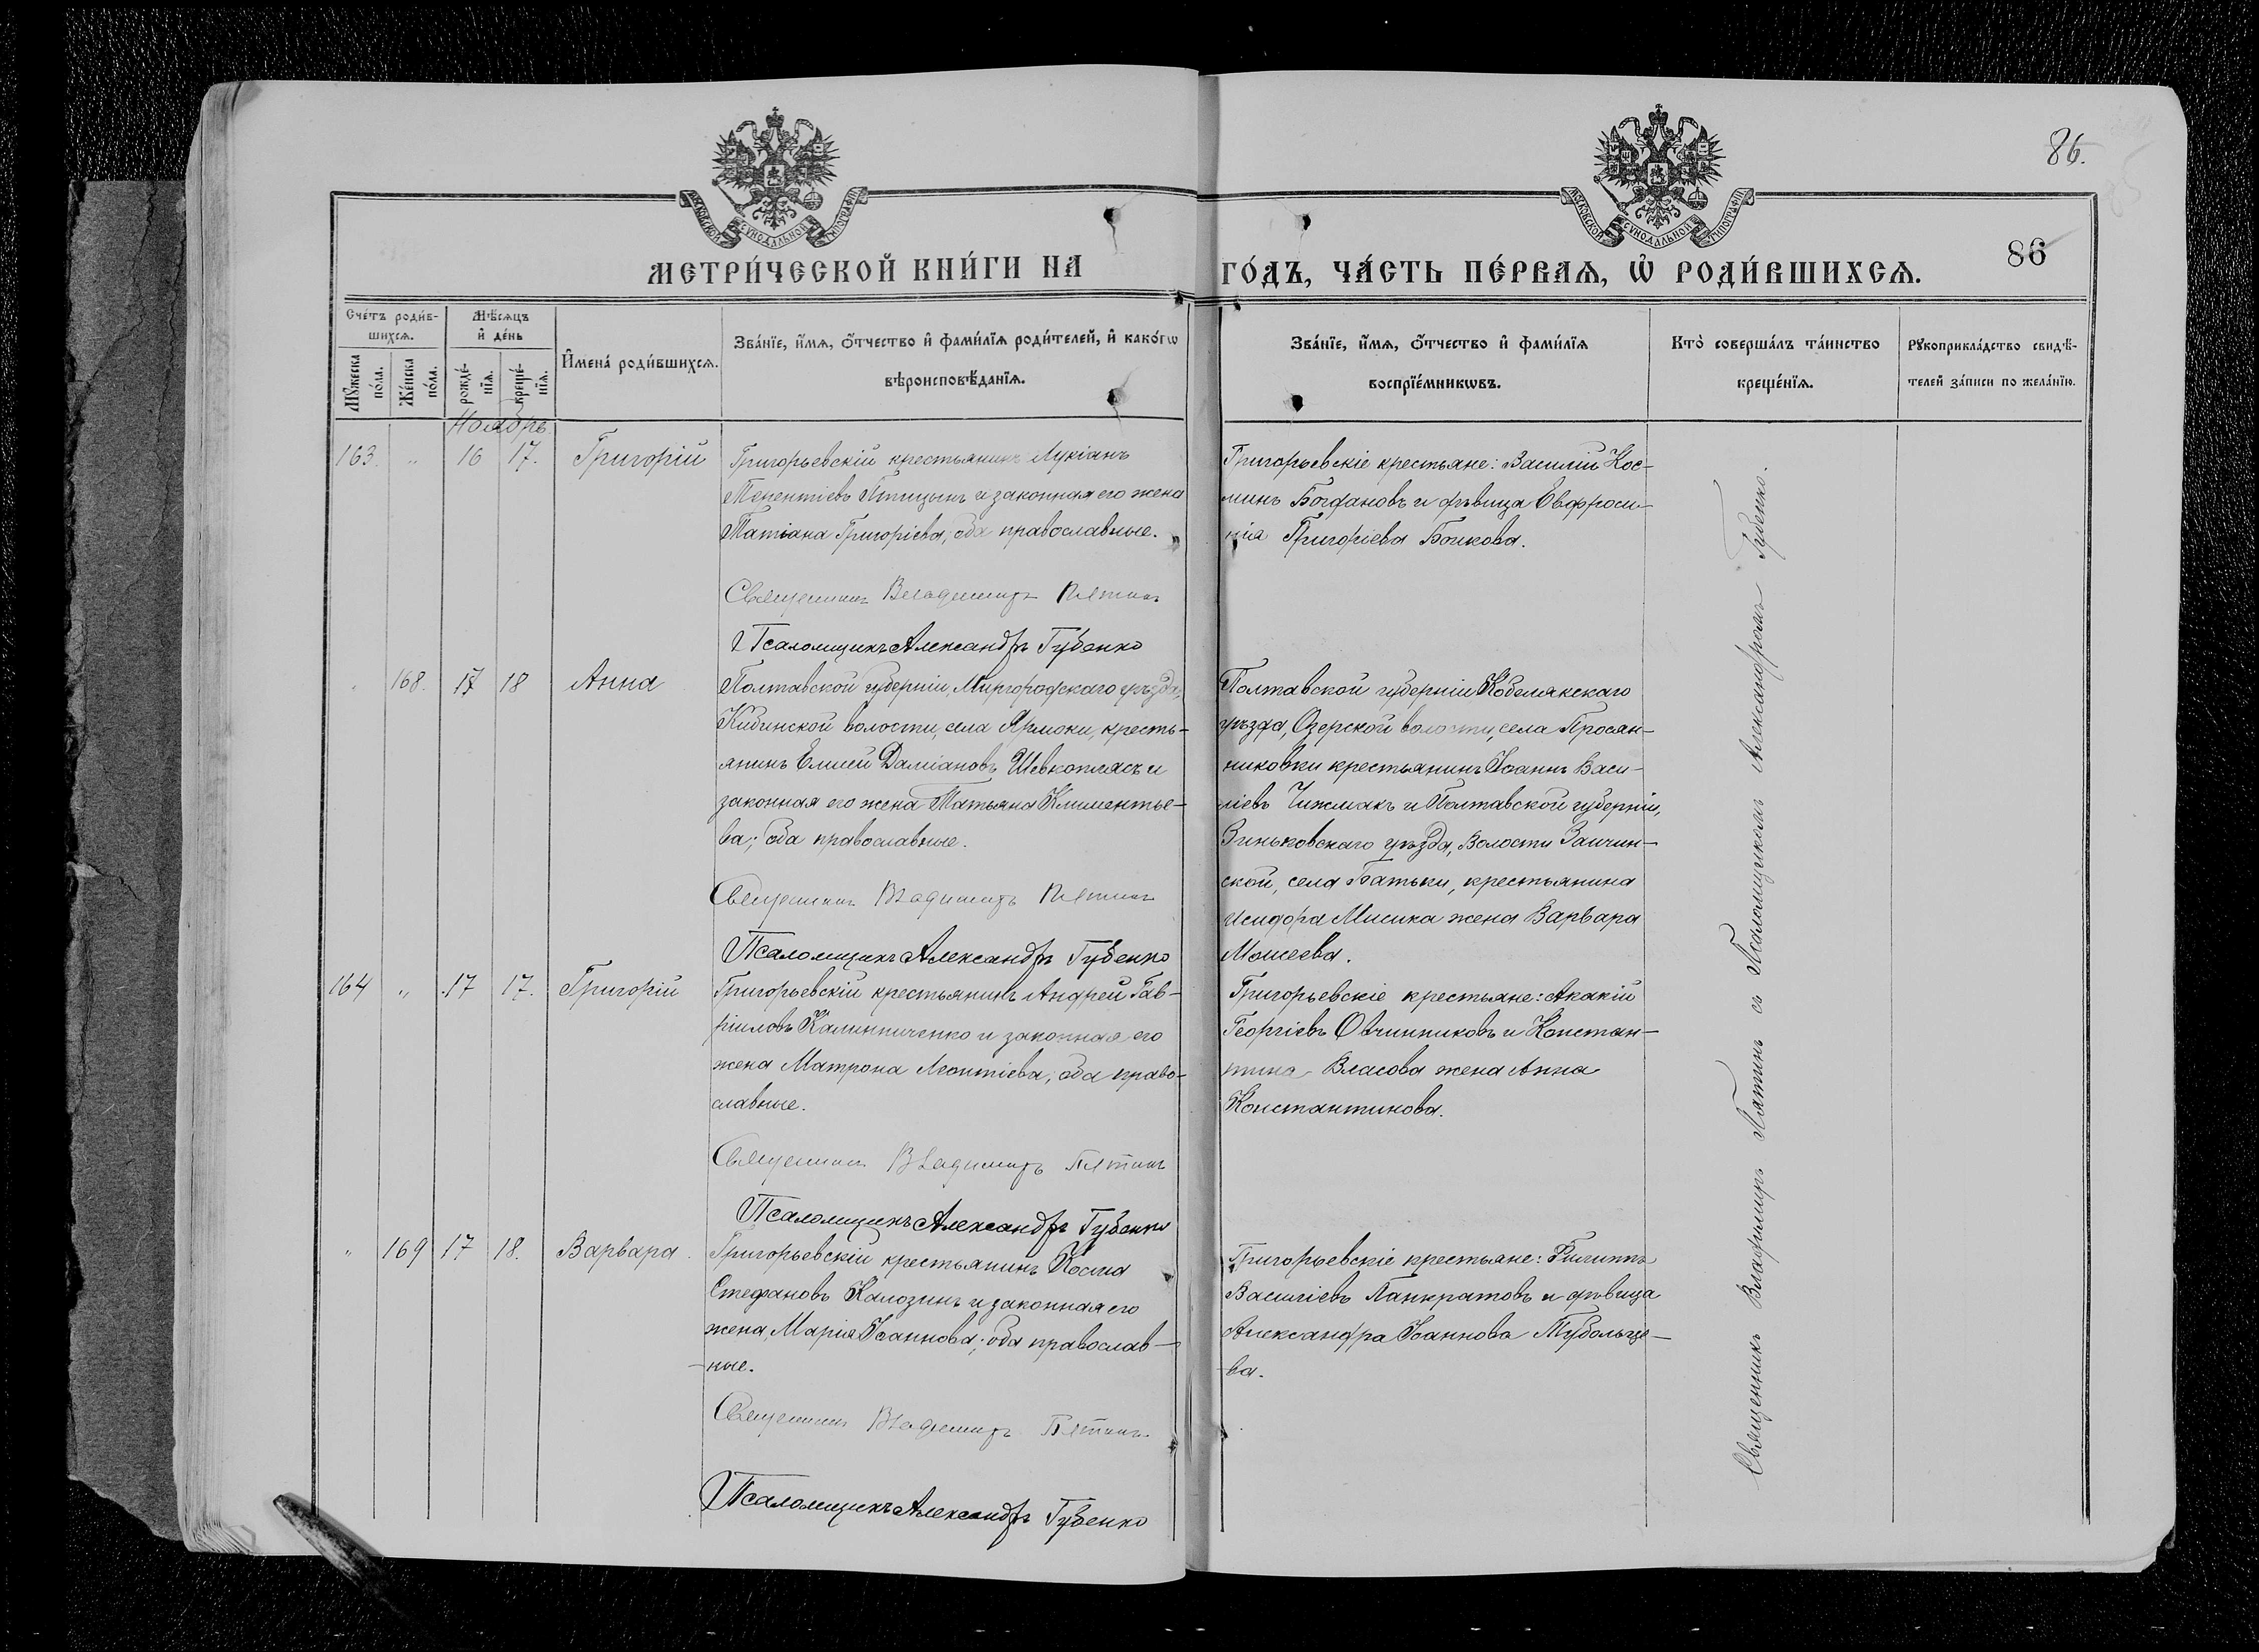 86.
МОСКОВСКОЙ СѴНОДАЛЬНОЙ ТИПОГРАФІИ
МОСКОВСКОЙ СѴНОДАЛЬНОЙ ТИПОГРАФІИ
86
МЕТРИ́ЧЕСКОЙ КНИ́ГИ НА ГО́ДЪ, ЧА́СТЬ ПЕ́РВАѦ, Ѡ҆ РОДИ́ВШИХСѦ.
Сче́тъ роди́в-
шихсѧ.
Мꙋ́жеска по́ла.
Же́нска по́ла.
Мѣ́сѧцъ
и҆ де́нь
рожде́-
нїѧ.
креще́-
нїѧ.
И҆мена̀ роди́вшихсѧ.
Зва́нїе, и҆́мѧ, ѻ҆́тчество и҆ фами́лїѧ роди́телей, и҆ како́гѡ
вѣроисповѣ́данїѧ.
Зва́нїе, и҆́мѧ, ѻ҆́тчество и҆ фами́лїѧ
воспрїе́мникѡвъ.
Кто̀ соверша́лъ та́инство
креще́нїѧ.
Рꙋкоприкла́дство свидѣ́-
телей за́писи по жела́нїю.
Ноябрь
163. „ 16 17. Григорій
Григорьевскій крестьянинъ Лукіанъ
Терентіевъ Птицынъ и законная его жена
Татіана Григоріева, оба православные.
Священникъ Владимиръ Пятинъ
Псаломщикъ Александръ Губенко
Григорьевскіе крестьяне: Василій Кос-
минъ Богдановъ и дѣвица Евфроси-
нія Григоріева Бочкова.
„ 168. 17 18 Анна
Полтавской губерніи, Миргородскаго уѣзда,
Кибинской волости, села Ярмоки, кресть-
янинъ Елисей Даміановъ Шевкоплясъ и
законная его жена Татьяна Климентье-
ва; оба православные.
Священникъ Владимиръ Пятинъ
Псаломщикъ Александръ Губенко
Полтавской губерніи Кобелякскаго
уѣзда, Озерской волости, села Просян-
никовки крестьянинъ Іоаннъ Васи-
ліевъ Чижмакъ и Полтавской губерніи,
Зиньковскаго уѣзда, Волости
ской, села Батьки, крестьянина
Исидора Мисика жена Варвара
Моисеева.
164 „ 17 17. Григорій
Григорьевскій крестьянинъ Андрей Гав-
ріиловъ Калинниченко и законная его
жена Матрона Леонтіева, оба право-
славные.
Священникъ Владимиръ Пятинъ
Псаломщикъ Александръ Губенко
Григорьевскіе крестьяне: Акакій
Георгіевъ Овчинниковъ и Констан-
тина Власова жена Анна
Константинова.
„ 169 17 18. Варвара.
Григорьевскій крестьянинъ Косма
Стефановъ Калозинъ и законная его
жена, Марія Іоаннова; оба православ-
-ные.
Священникъ Владимиръ Пятинъ
Псаломщикъ Александръ Губенко
Григорьевскіе крестьяне: Филиппъ
Василіевъ Панкратовъ и дѣвица
Александра Іоаннова Тубольце-
-ва.
Священникъ Владимиръ Пятинъ съ Псаломщикомъ Александромъ Губенко.